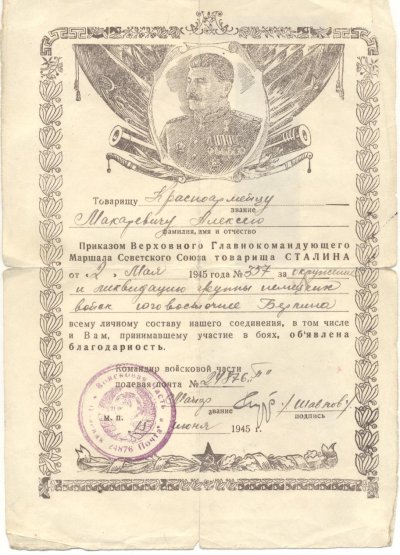 Товарищу Красноармейцу
звание
Макаревичу Алексею
фамилия, имя и отчество
Приказом Верховного Главнокомандующего
Маршала Советского Союза товарища СТАЛИНА
от „2„ Мая 1945 года № 357 за окружение
и ликвидацию группы немецких
войск юговосточнее Берлина
всему личному составу нашего соединения, в том числе
и Вам, принимавшему участие в боях, об'явлена
благодарность.
Командир войсковой части
полевая почта № 24876 "
Майор /Шавлов/
звание подпись
м. п. июня 1945 г.
Войсковая часть
24876 Почта